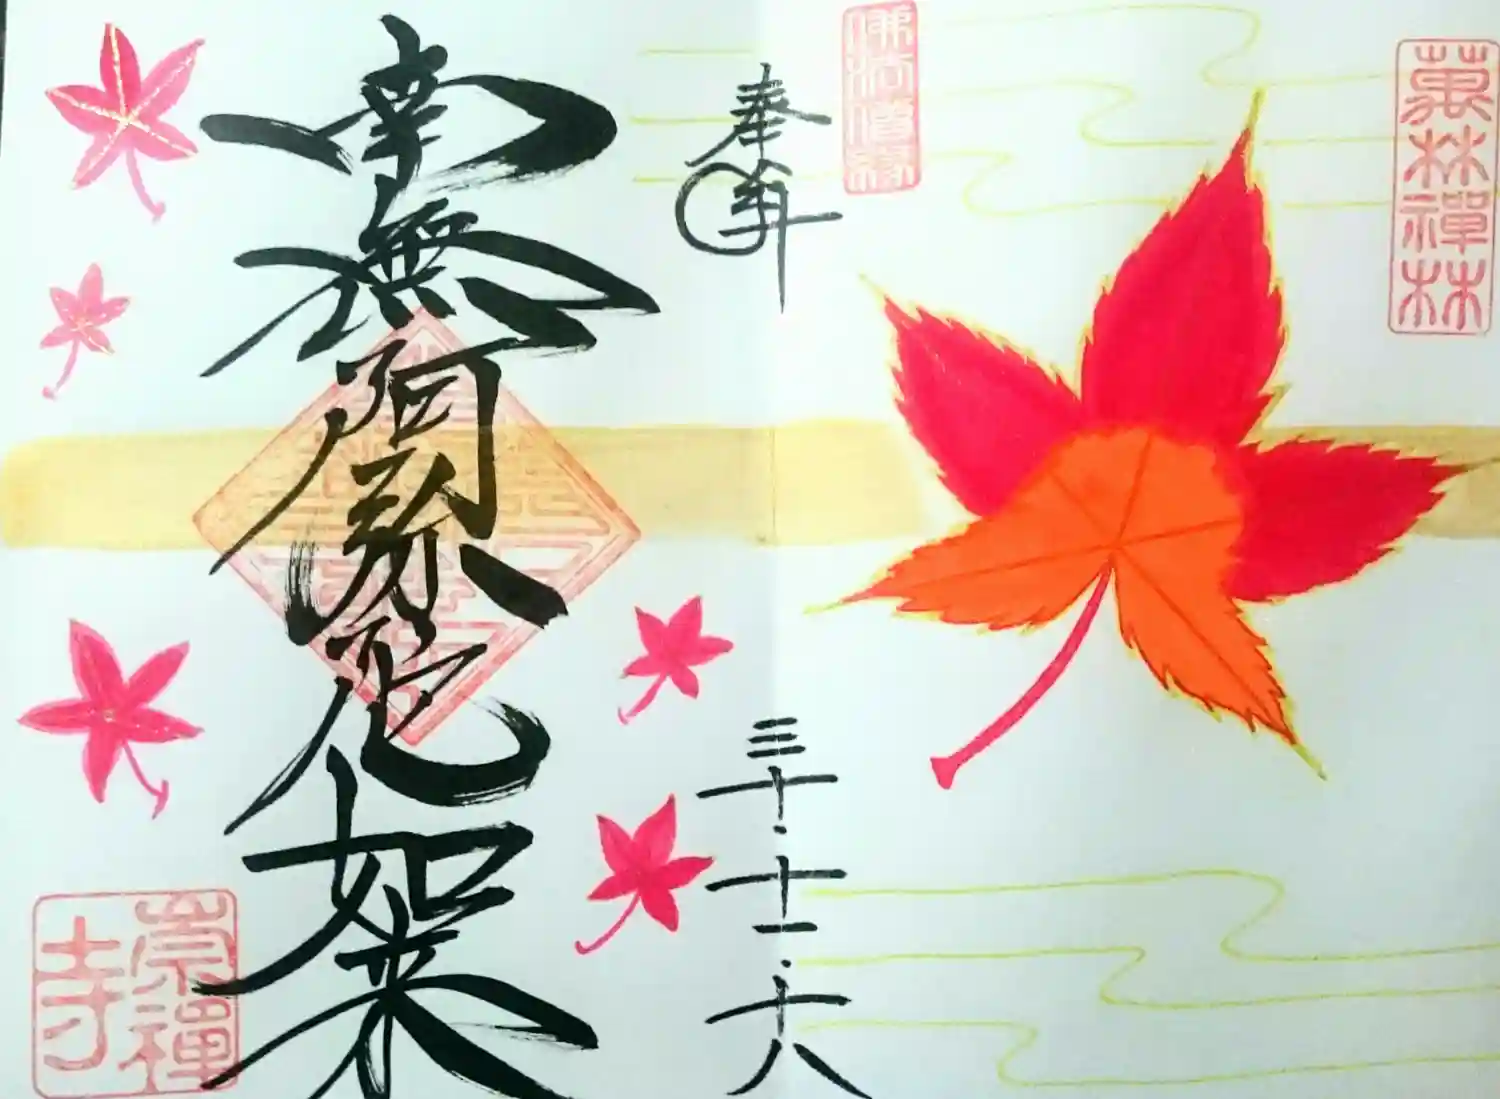 萬林禪林
佛法僧寶
奉拜
三十·十一·十八
南無阿弥陀如来
崇禪寺